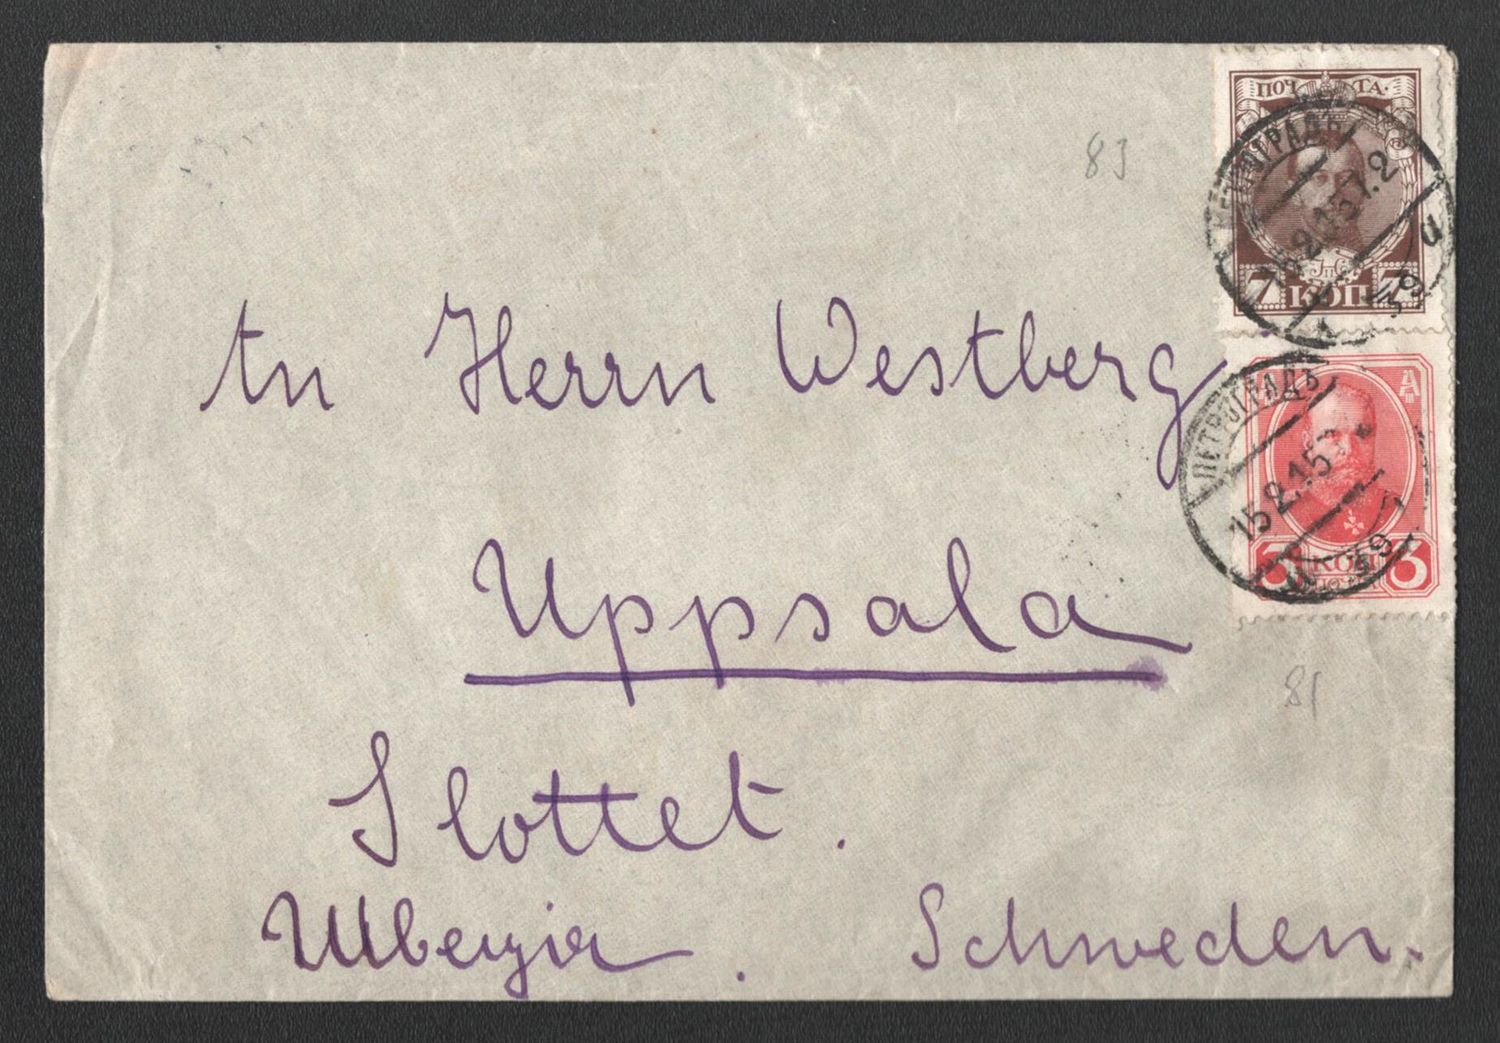 83
ПОЧТА.
ПЕТРОГРАДЪ
15.2.15
7 КОП 7
An Herrn Westberg
ПЕТРОГРАДЪ
15.2.15
3 КОП 3
Uppsala
81
Slottet.
Швеція. Schweden.